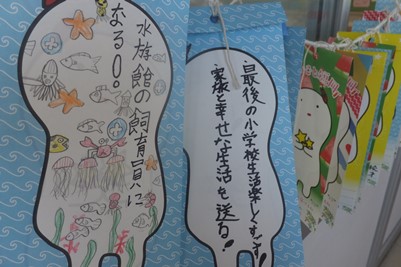 水族館の飼育員に
なる!
・最後の小学校生活楽しくすごす!
・家族と幸せな生活を送る!